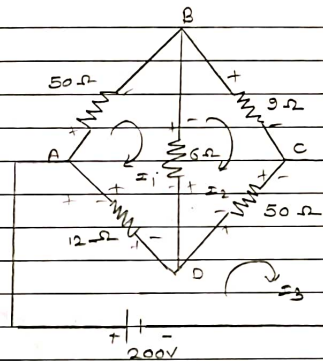 B
50 Ω
+
9 Ω
+
+
-
-
A
6 Ω
C
I1
-
+
I2
+
-
50 Ω
+
-
+
-
+
12 Ω
-
D
I3
+
-
200V